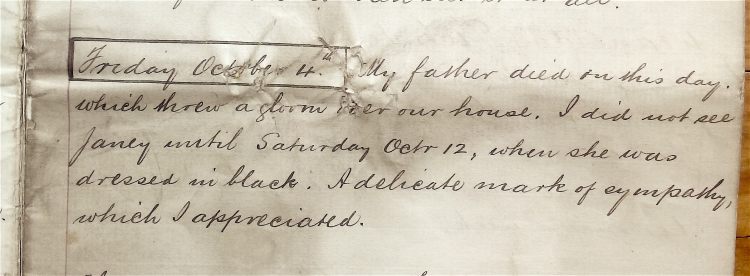 Friday October 4.th My father died on this day.
which threw a gloom over our house. I did not see
Janey until Saturday Octr 12, when she was
dressed in black. A delicate mark of sympathy,
which I appreciated.